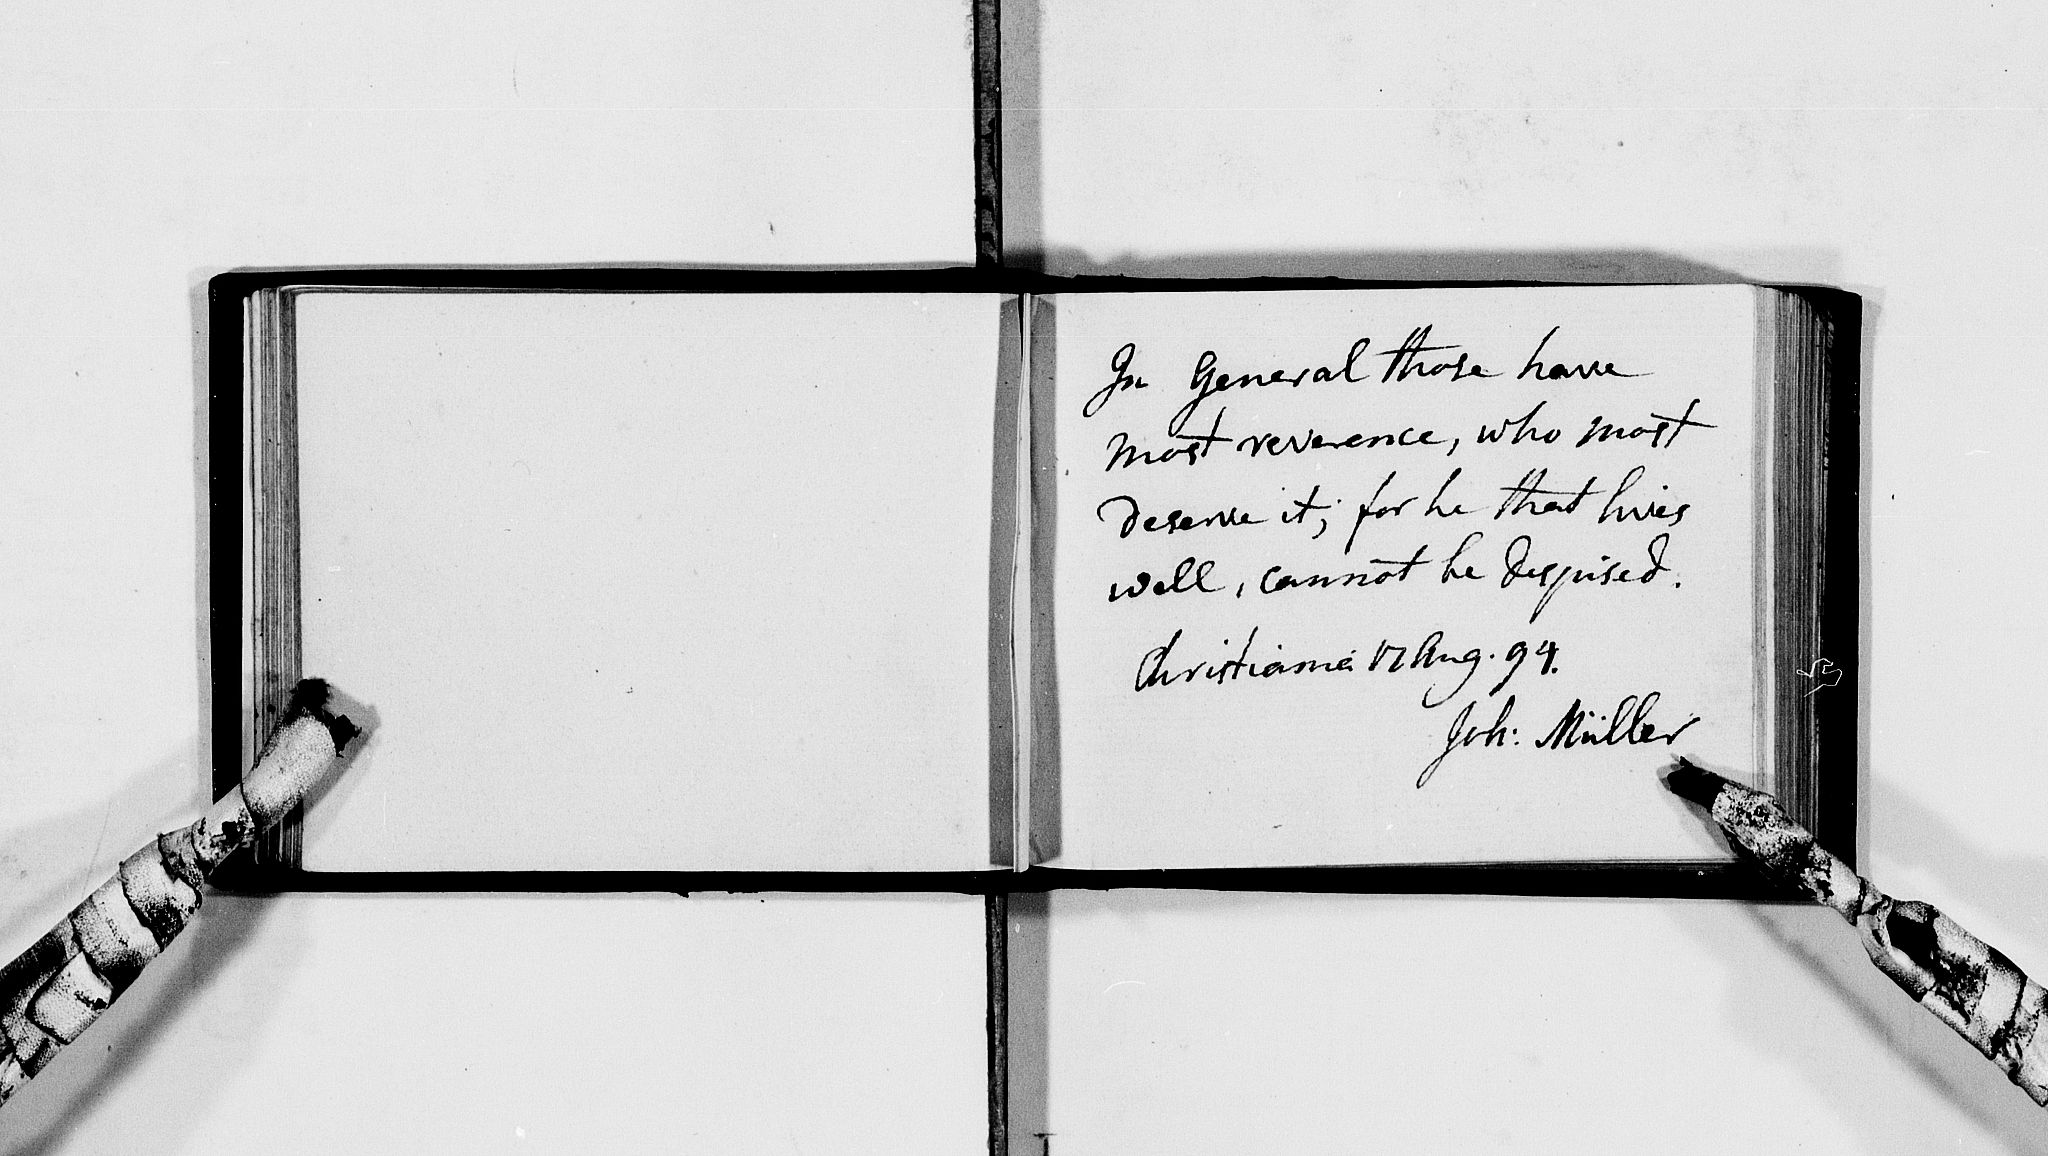 In General those have
most reverence, who most
deserve it; for he that lives
well, cannot be despised.
Christiania 17 Aug. 94.
Joh: Müller